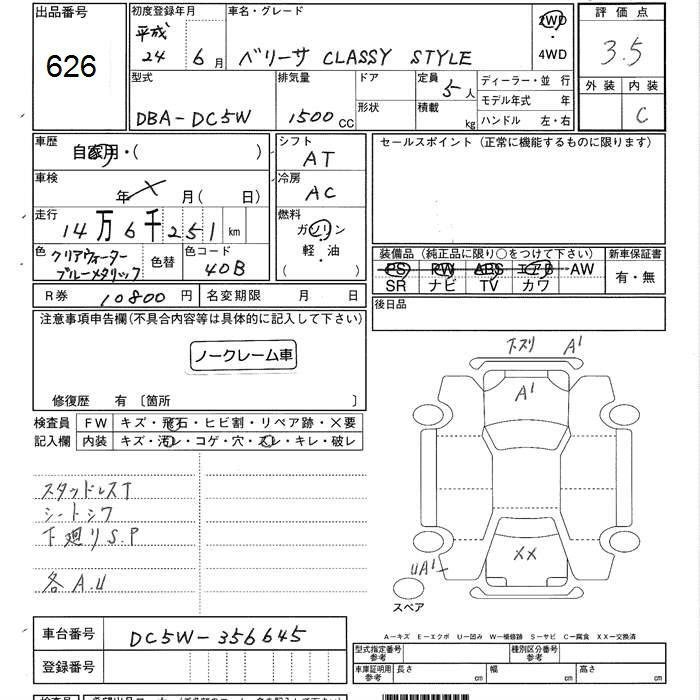 出品番号 初度登録年月 車名・グレード 評価点
626 平成 24 6月 ベリーサ CLASSY STYLE 2WD ・ 4WD 3.5
型式 排気量 ドア 定員 5人 ディーラー・並行 外装 内装
DBA-DC5W 1500cc 形状 積載 kg モデル年式 年 C
ハンドル 左・右
車歴 シフト セールスポイント(正常に機能するものに限ります)
自家用・( ) AT
車検 冷房
年 × 月( 日) AC
走行 燃料
14万6千251km ガソリン
軽・油
( ・ )
色 クリアウォーターブルーメタリック 色替 色コード 40B
装備品(純正品に限り○をつけて下さい) 新車保証書
PS PW ABS エアB AW 有・無
SR ナビ TV カワ
R券 10800円 名変期限 月 日 後日品
注意事項申告欄(不具合内容等は具体的に記入して下さい)
ノークレーム車
修復歴 有〔箇所 〕
検査員 FW キズ・飛石・ヒビ割・リペア跡・×要
記入欄 内装 キズ・汚レ・コゲ・穴・スレ・キレ・破レ
スタッドレスT
シートシワ
下廻りS.P
各A.U
下スリ A1
A1
XX
UA1
スペア
A−キズ E−エクボ U−凹み W−補修跡 S−サビ C−腐食 XX−交換済
車台番号 DC5W-356645 型式指定番号 参考 種別区分番号 参考
登録番号 車庫証明用 参考 長さ cm 幅 cm 高さ cm